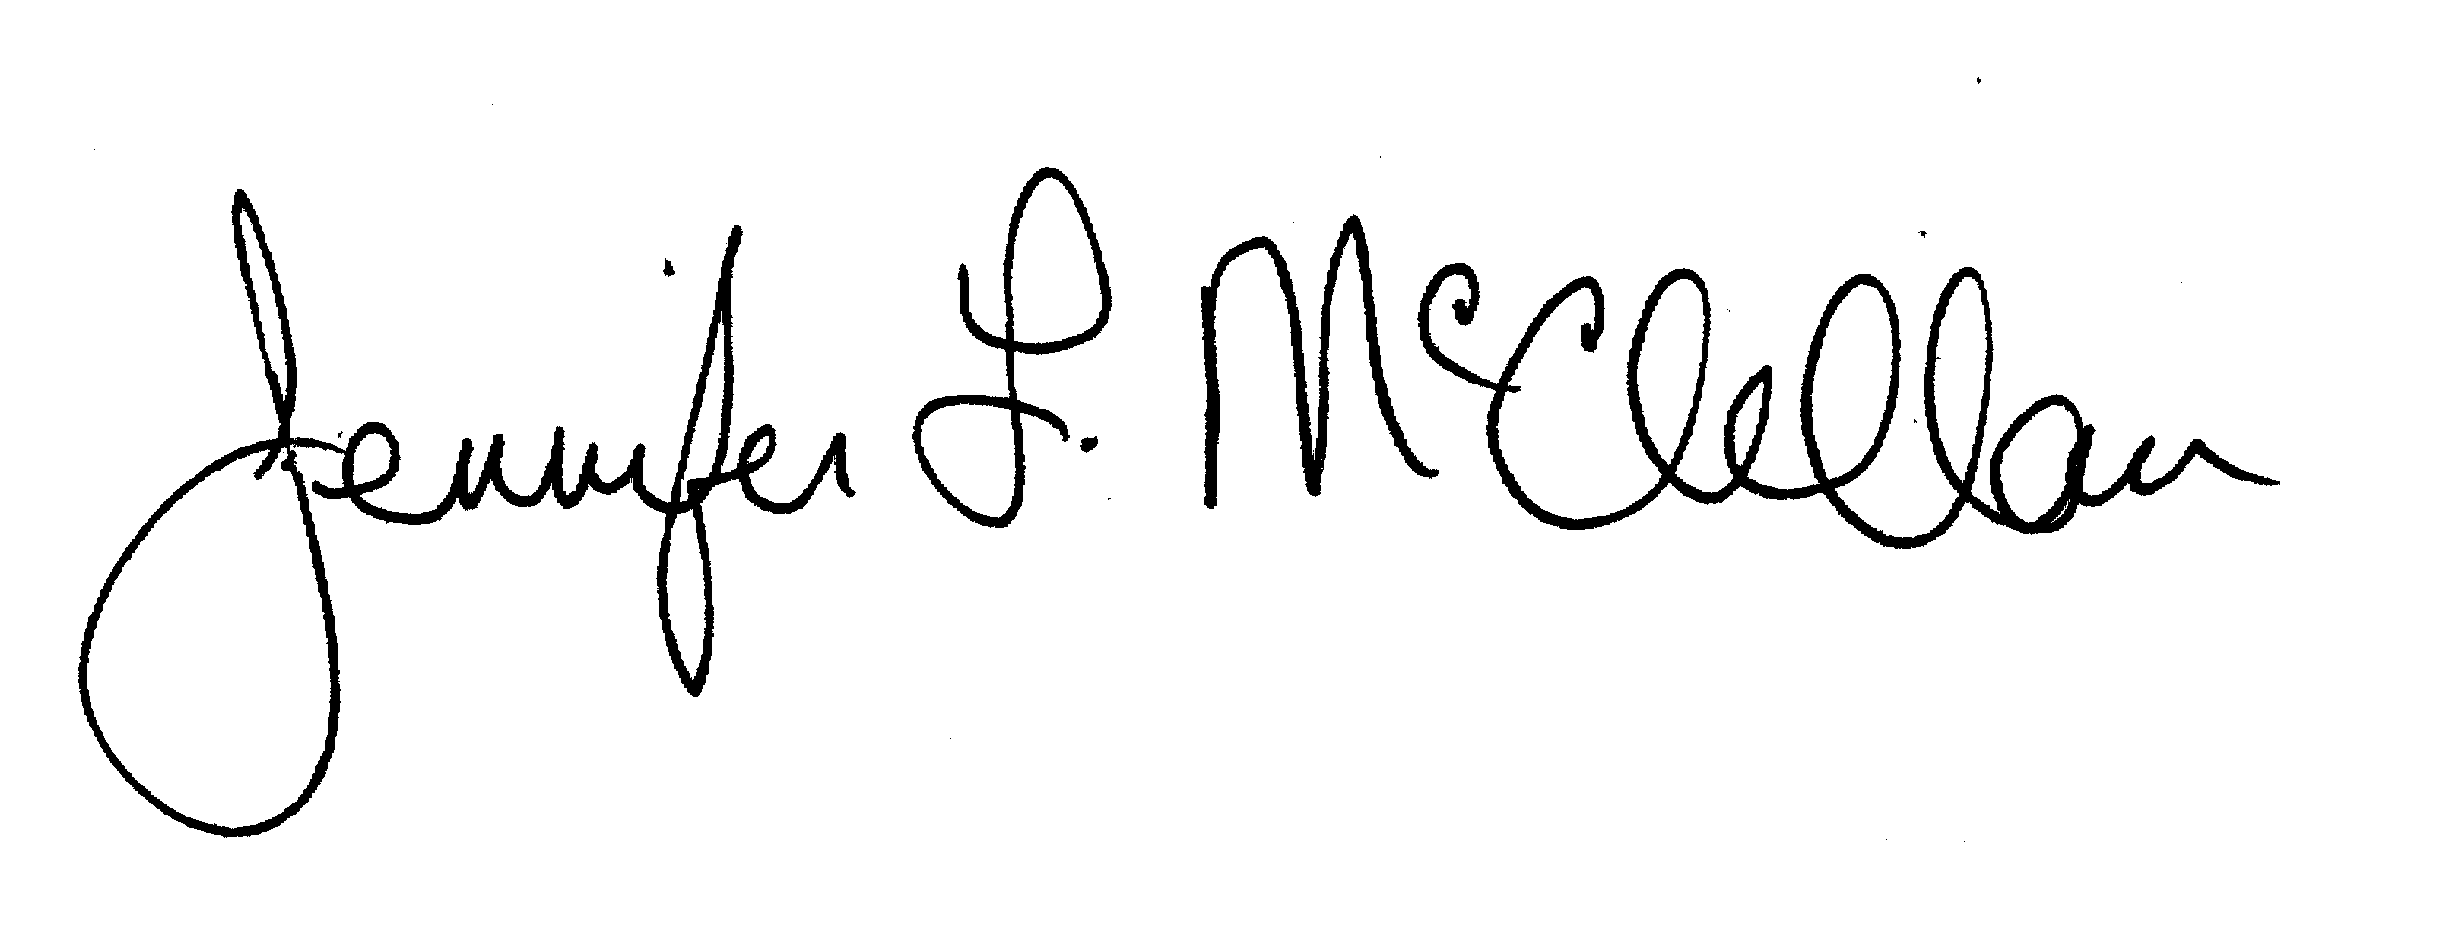 Jennifer L. McClellan